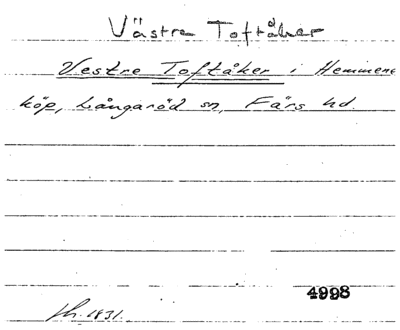 Västre Toftåker
Vestre Toftåker i Hemmene
köp, Långaröd sn, Färs hd.
4998
1831.